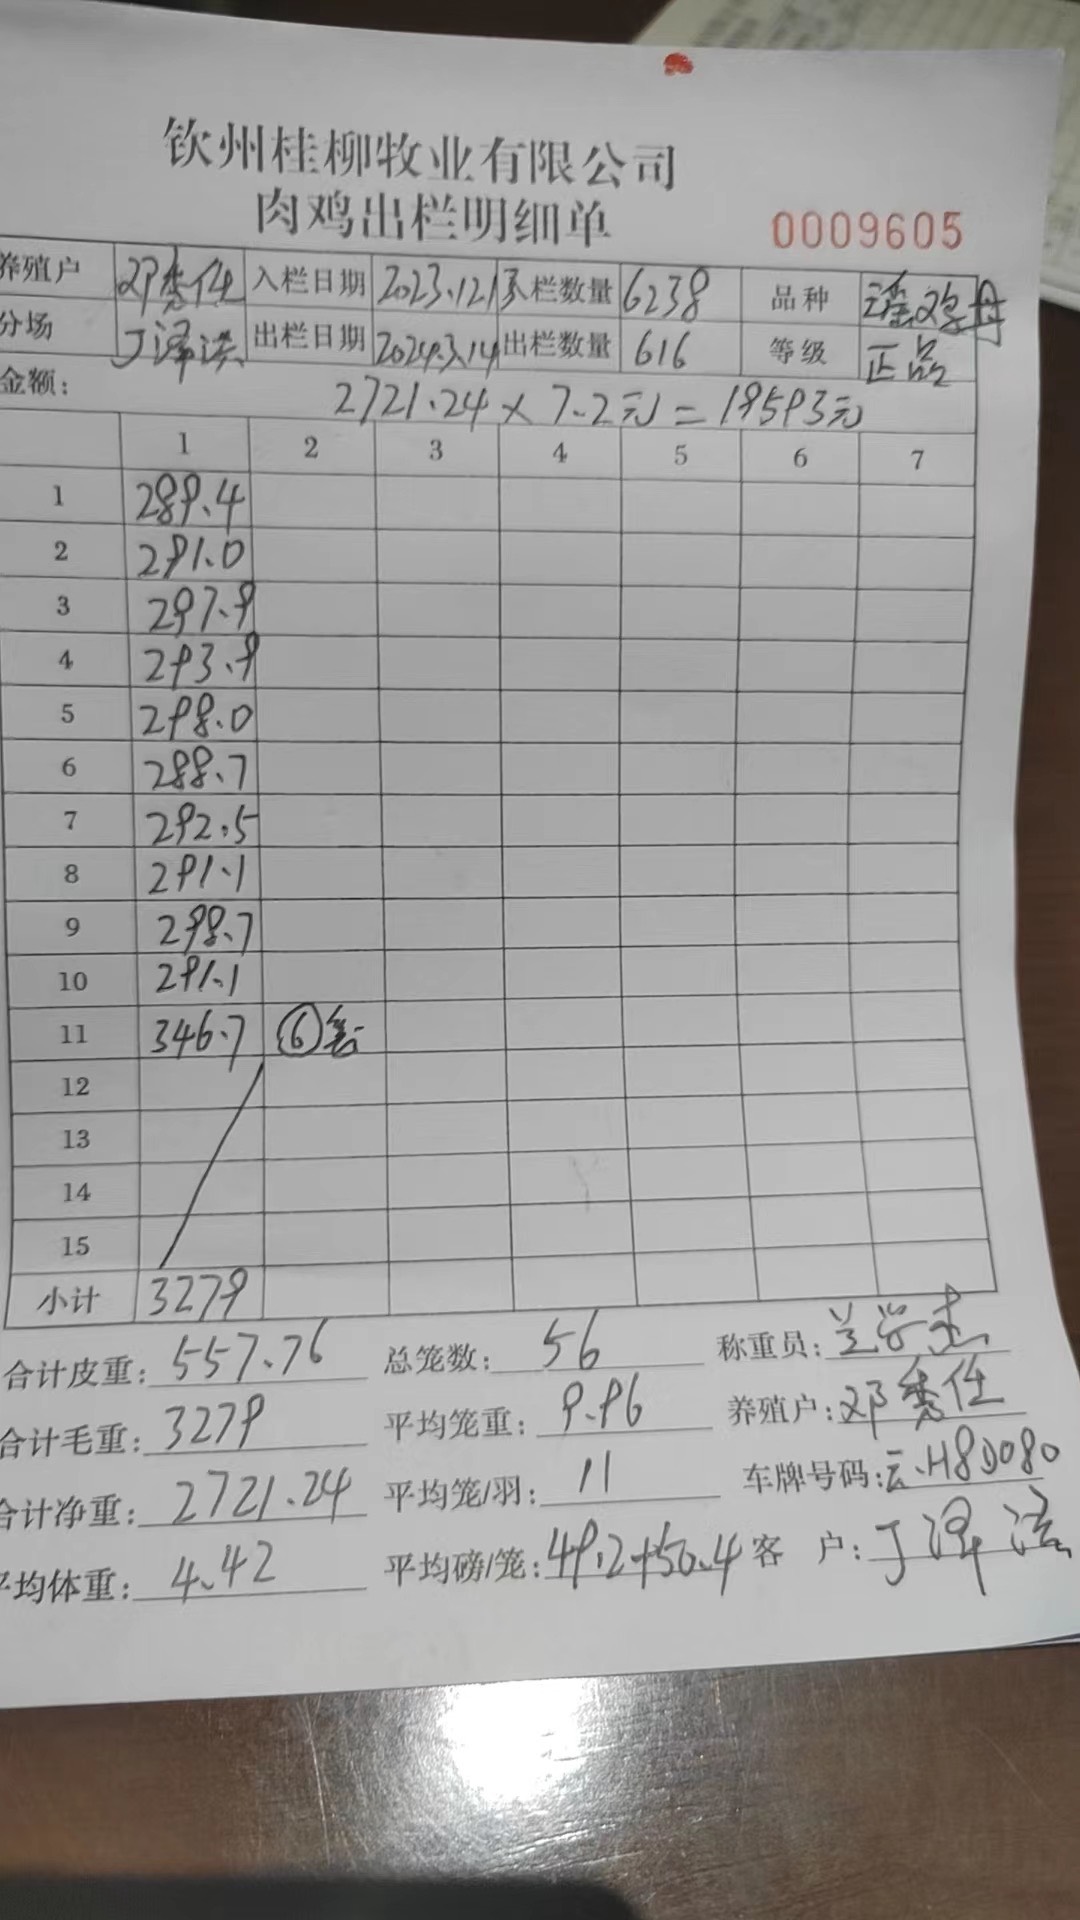 钦州桂柳牧业有限公司
肉鸡出栏明细单
0009605
养殖户 邓秀任 入栏日期 2023.12.13 入栏数量 6238 品种 瑶鸡母
分场 丁泽洪 出栏日期 2024.3.14 出栏数量 616 等级 正品
金额: 2721.24 × 7.2元 = 19593元
1 2 3 4 5 6 7
1 289.4
2 291.0
3 297.9
4 293.9
5 298.0
6 288.7
7 292.5
8 291.1
9 298.7
10 291.1
11 346.7 ⑥笼
12
13
14
15
小计 3279
合计皮重: 557.76 总笼数: 56 称重员: 兰学杰
合计毛重: 3279 平均笼重: 9.96 养殖户: 邓秀任
合计净重: 2721.24 平均笼/羽: 11 车牌号码: 云.H8D080
平均体重: 4.42 平均磅/笼: 49.2+50.4 客 户: 丁泽洪